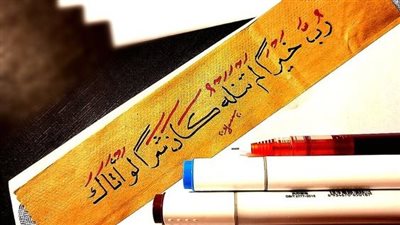 رُبَّ خيرٍ لم تنله كان شرًا لو أتاك